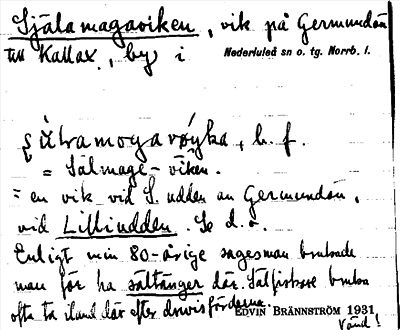 Själamagaviken, vik på Germundön
till Kallax, by i Nederluleå sn o. tg. Norrb. l.
= Sälmage-viken.
= en vik vid S. udden av Germundön,
vid Lilludden. Se d. o.
Enligt min 80-årige sagesman brukade
man för ha sältänger där. Sälfiskare bruka
ofta ta iland där efter
EDVIN BRÄNNSTRÖM 1931
Vänd!